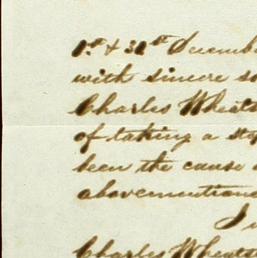 1st & 31st Decemb
with sincere so
Charles Wheats
of taking a ste
been the cause
abovementione
Charles Wheats